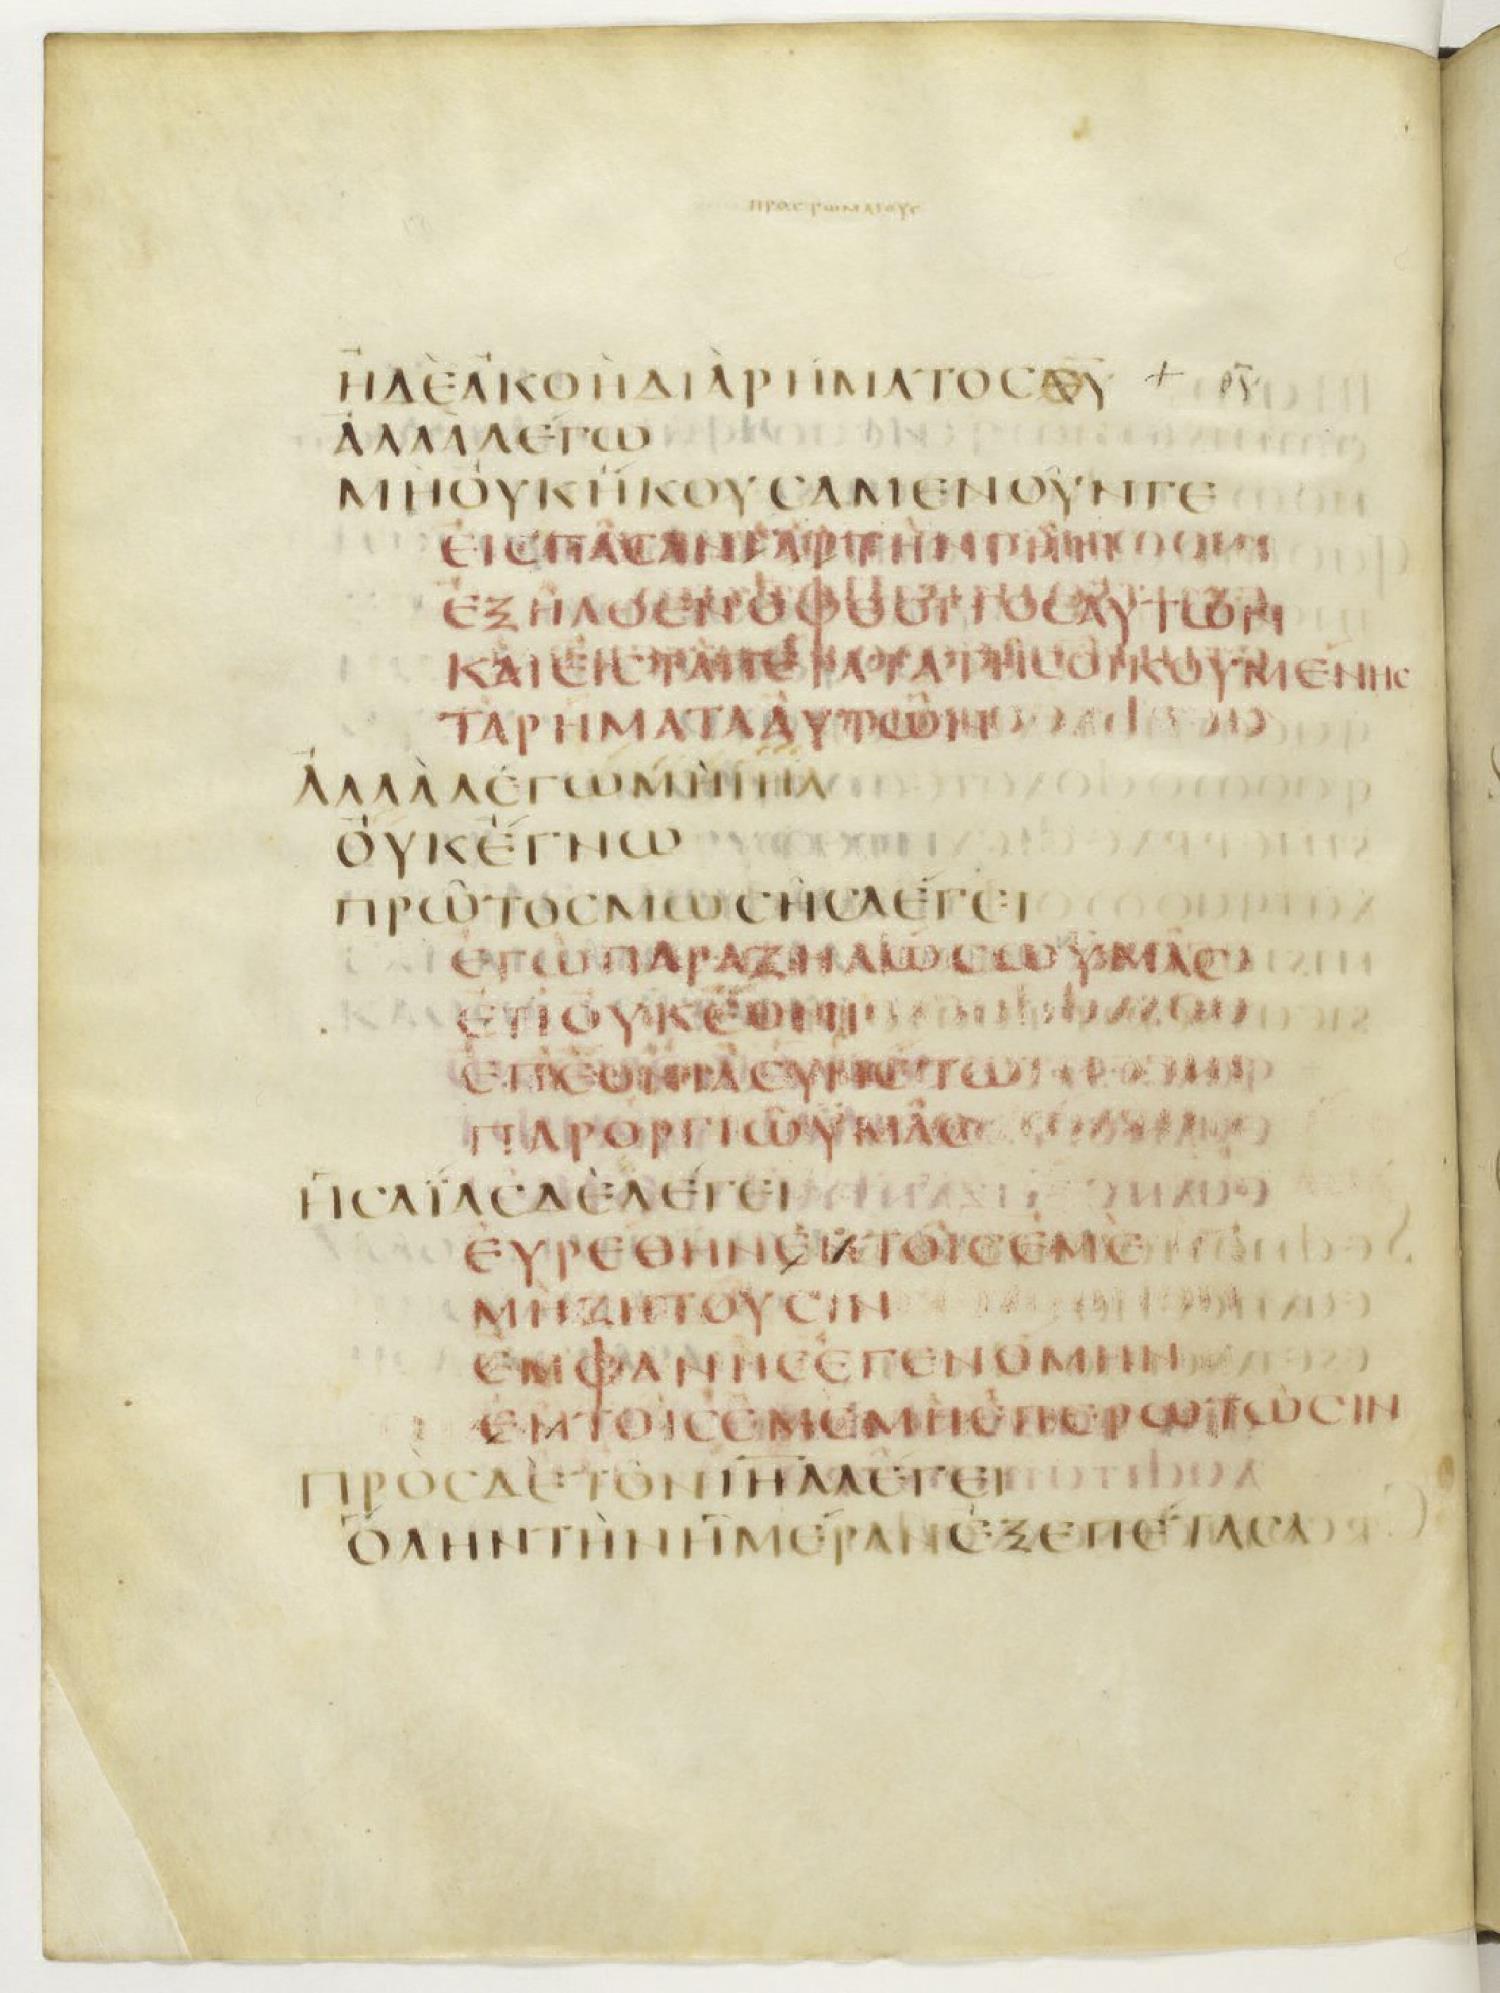 ΠΡΟΣ ΡΩΜΑΙΟΥΣ
ΗΔΕΑΚΟΗΔΙΑΡΗΜΑΤΟСΘΥ + ΘΥ
ΑΛΛΑΛΕΓΩ
ΜΗΟΥΚΗΚΟΥСΑΜΕΝΟΥΝΓΕ
ΕΙСΠΑСΑΝΓΑΡΤΗΝΓΗΝ
ΕΞΗΛΘΕΝΟΦΘΟΓΓΟСΑΥΤΩΝ
ΚΑΙΕΙСΤΑΠΕΡΑΤΑΤΗСΟΙΚΟΥΜΕΝΗС
ΤΑΡΗΜΑΤΑΑΥΤΩΝ
ΑΛΛΑΛΕΓΩΜΗΙΗΛ
ΟΥΚΕΓΝΩ
ΠΡΩΤΟСΜΩСΗСΛΕΓΕΙ
ΕΓΩΠΑΡΑΖΗΛΩСΩΥΜΑС
ΕΠΟΥΚΕΘΝΙ
ΕΠΕΘΝΙΑСΥΝΕΤΩ
ΠΑΡΟΡΓΙΩΥΜΑС
ΗСΑΙΑСΔΕΛΕΓΕΙ
ΕΥΡΕΘΗΝΕΝΤΟΙСΕΜΕ
ΜΗΖΗΤΟΥСΙΝ
ΕΜΦΑΝΗСΕΓΕΝΟΜΗΝ
ΕΝΤΟΙСΕΜΕΜΗΕΠΕΡΩΤΩСΙΝ
ΠΡΟСΔΕΤΟΝΙΗΛΛΕΓΕΙ
ΟΛΗΝΤΗΝΗΜΕΡΑΝΕΞΕΠΕΤΑСΑ